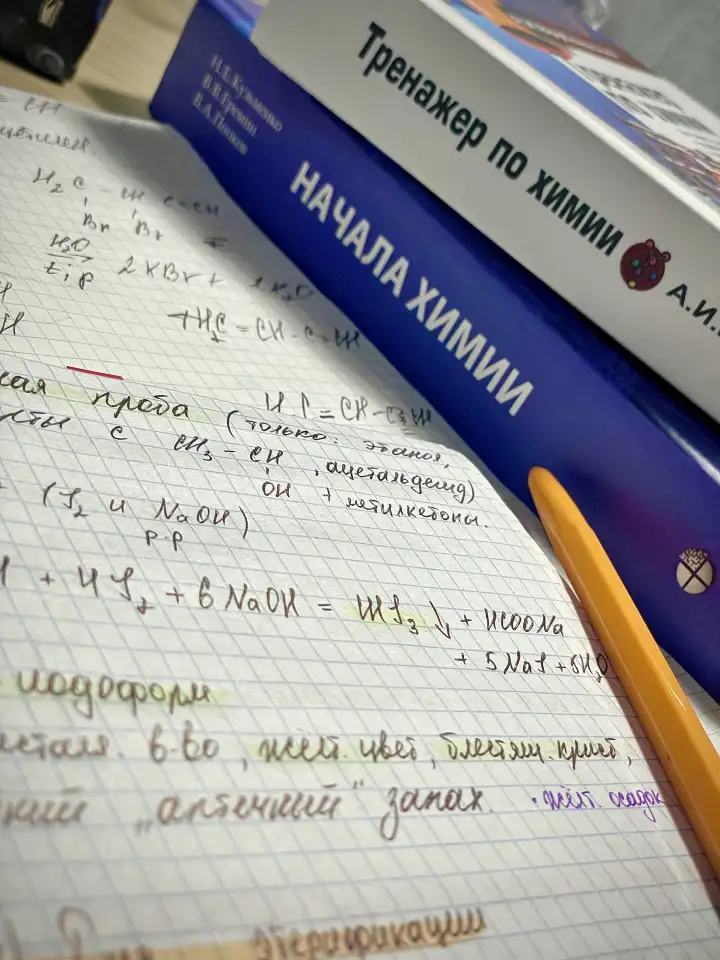 Тренажер по химии
А.И.
Н.Е. Кузьменко
В.В. Еремин
В.А. Попков
НАЧАЛА ХИМИИ
= CH
H₂C - CH C-CH
Br Br
H₂O
t°, p 2 KBr + 2 H₂O
+ H₂C = CH - C = CH
H
H
HC = CH - C ≡ CH
проба (только: этанол,
с CH₃ - CH , ацетальдегид)
OH + метилкетоны.
+ (I₂ и NaOH)
р-р
+ 4I₂ + 6NaOH = CHI₃↓ + HCOONa
+ 5NaI + 5H₂O
- иодоформ
в-во, жёлт. цвет, блестящ. крист,
"аптечный" запах. · жёлт. осадок
этерификации